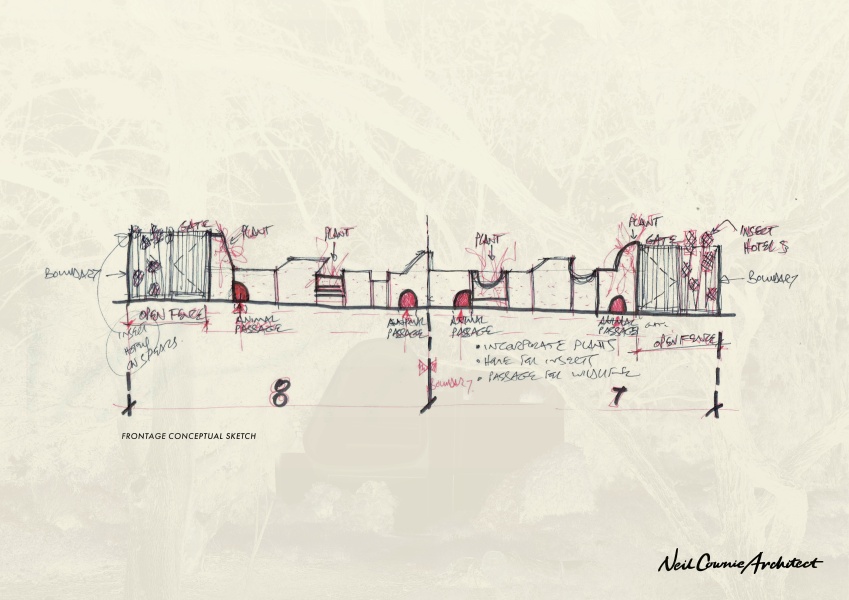 GATE
PLANT
PLANT
PLANT
PLANT
GATE
INSECT
HOTELS
BOUNDARY
BOUNDARY
OPEN FENCE
ANIMAL
PASSAGE
ANIMAL
PASSAGE
ANIMAL
PASSAGE
ANIMAL
PASSAGE
OPEN FENCE
INSECT
HOTELS
ON SPEARS
• INCORPORATE PLANTS
• HOME FOR INSECTS
• PASSAGE FOR WILDLIFE
BOUNDARY
8
7
FRONTAGE CONCEPTUAL SKETCH
Neil Cownie Architect